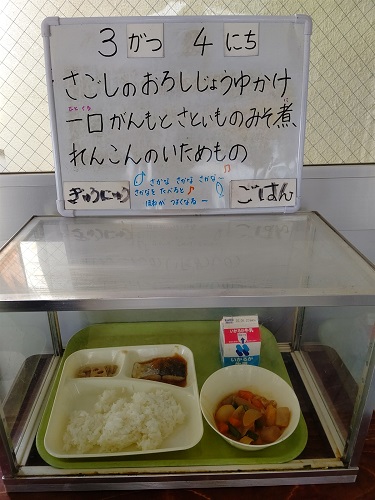 3 がつ 4 にち
さごしのおろしじょうゆかけ
ひとくち
一口がんもとさといものみそ煮
れんこんのいためもの
ぎゅうにゅう
さかな さかな さかなー
さかなを たべると
ほねが つよくなるー
ごはん
いかるが牛乳
いかるが